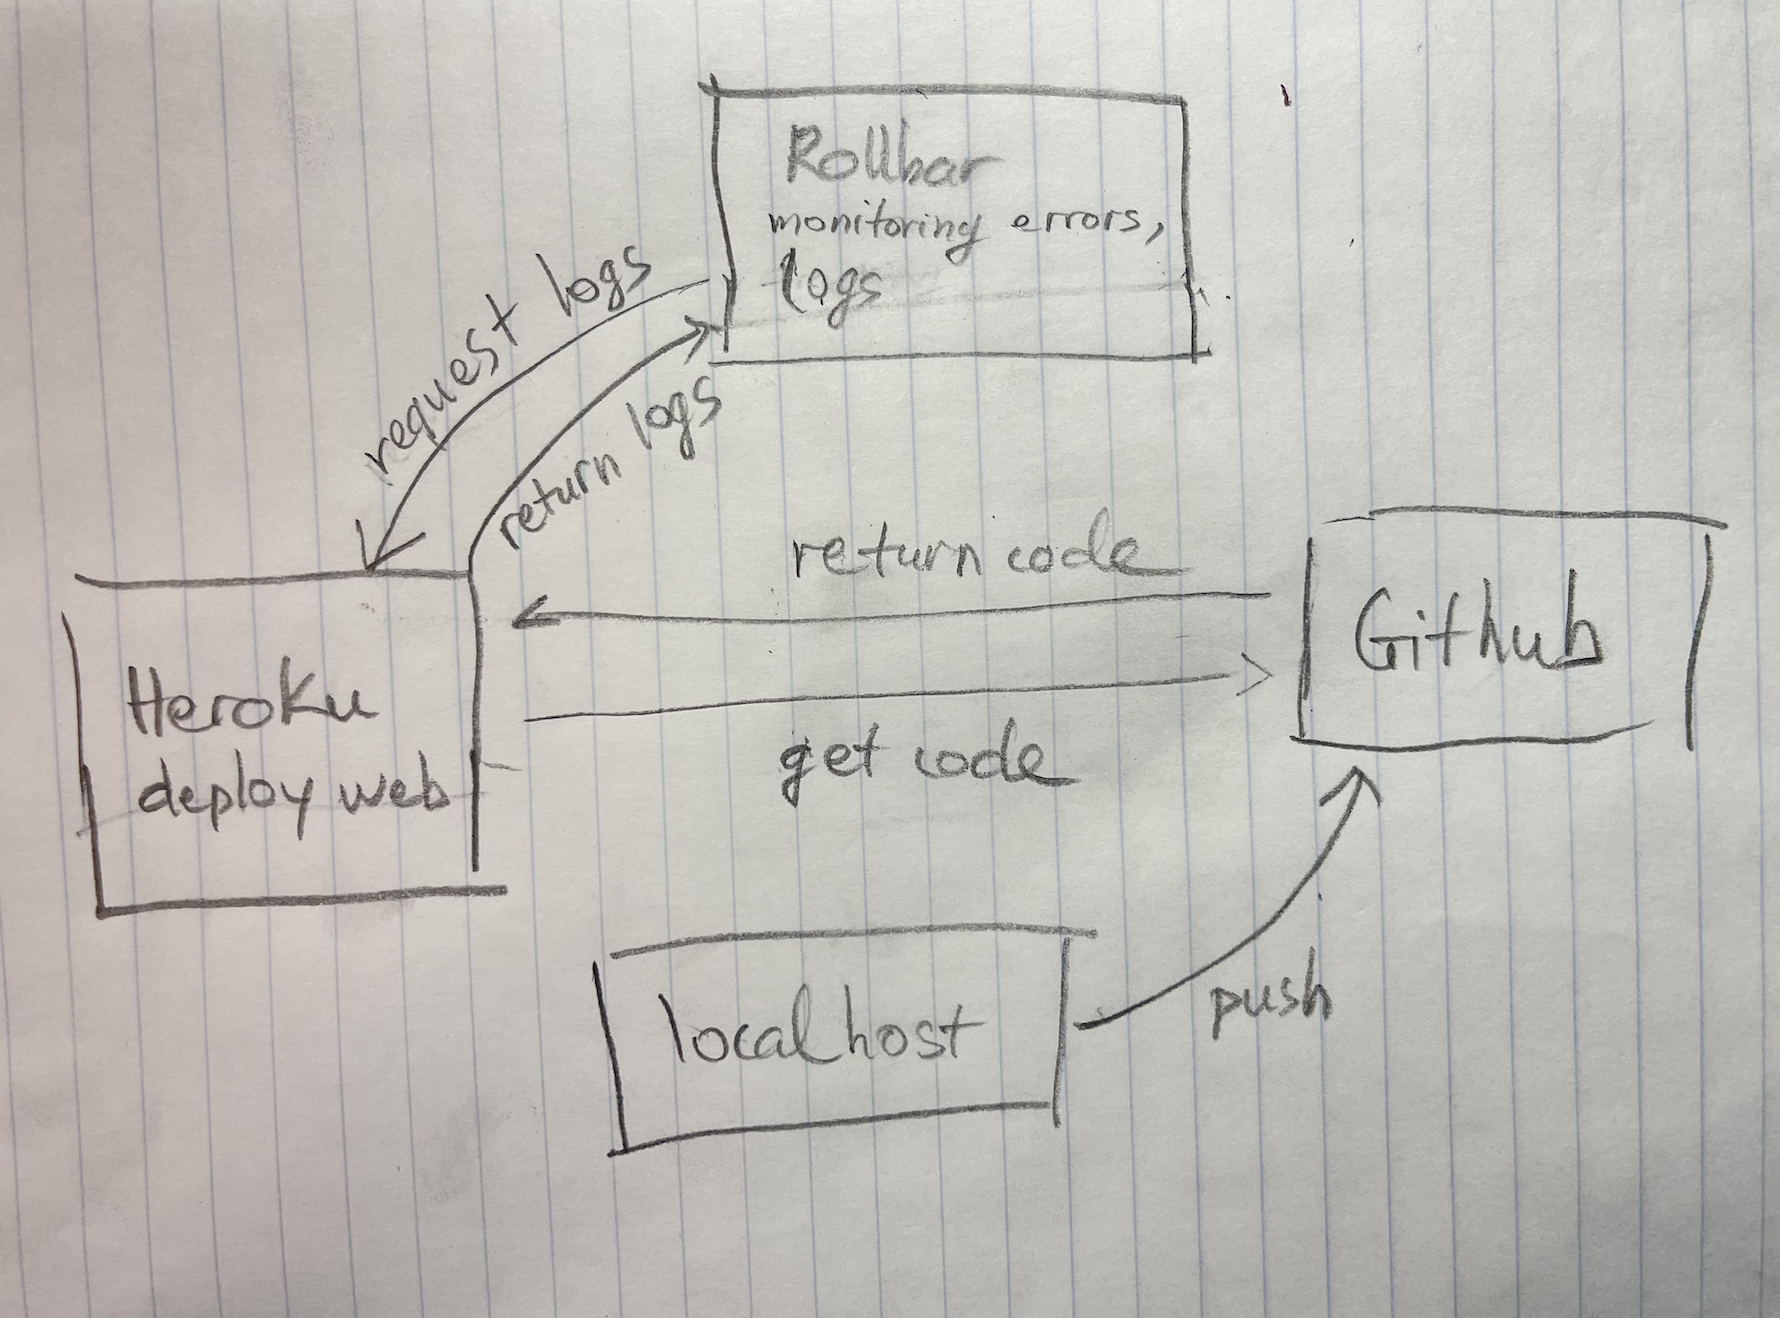 Rollbar
monitoring errors,
logs
request logs
return logs
return code
Github
Heroku
deploy web
get code
localhost
push